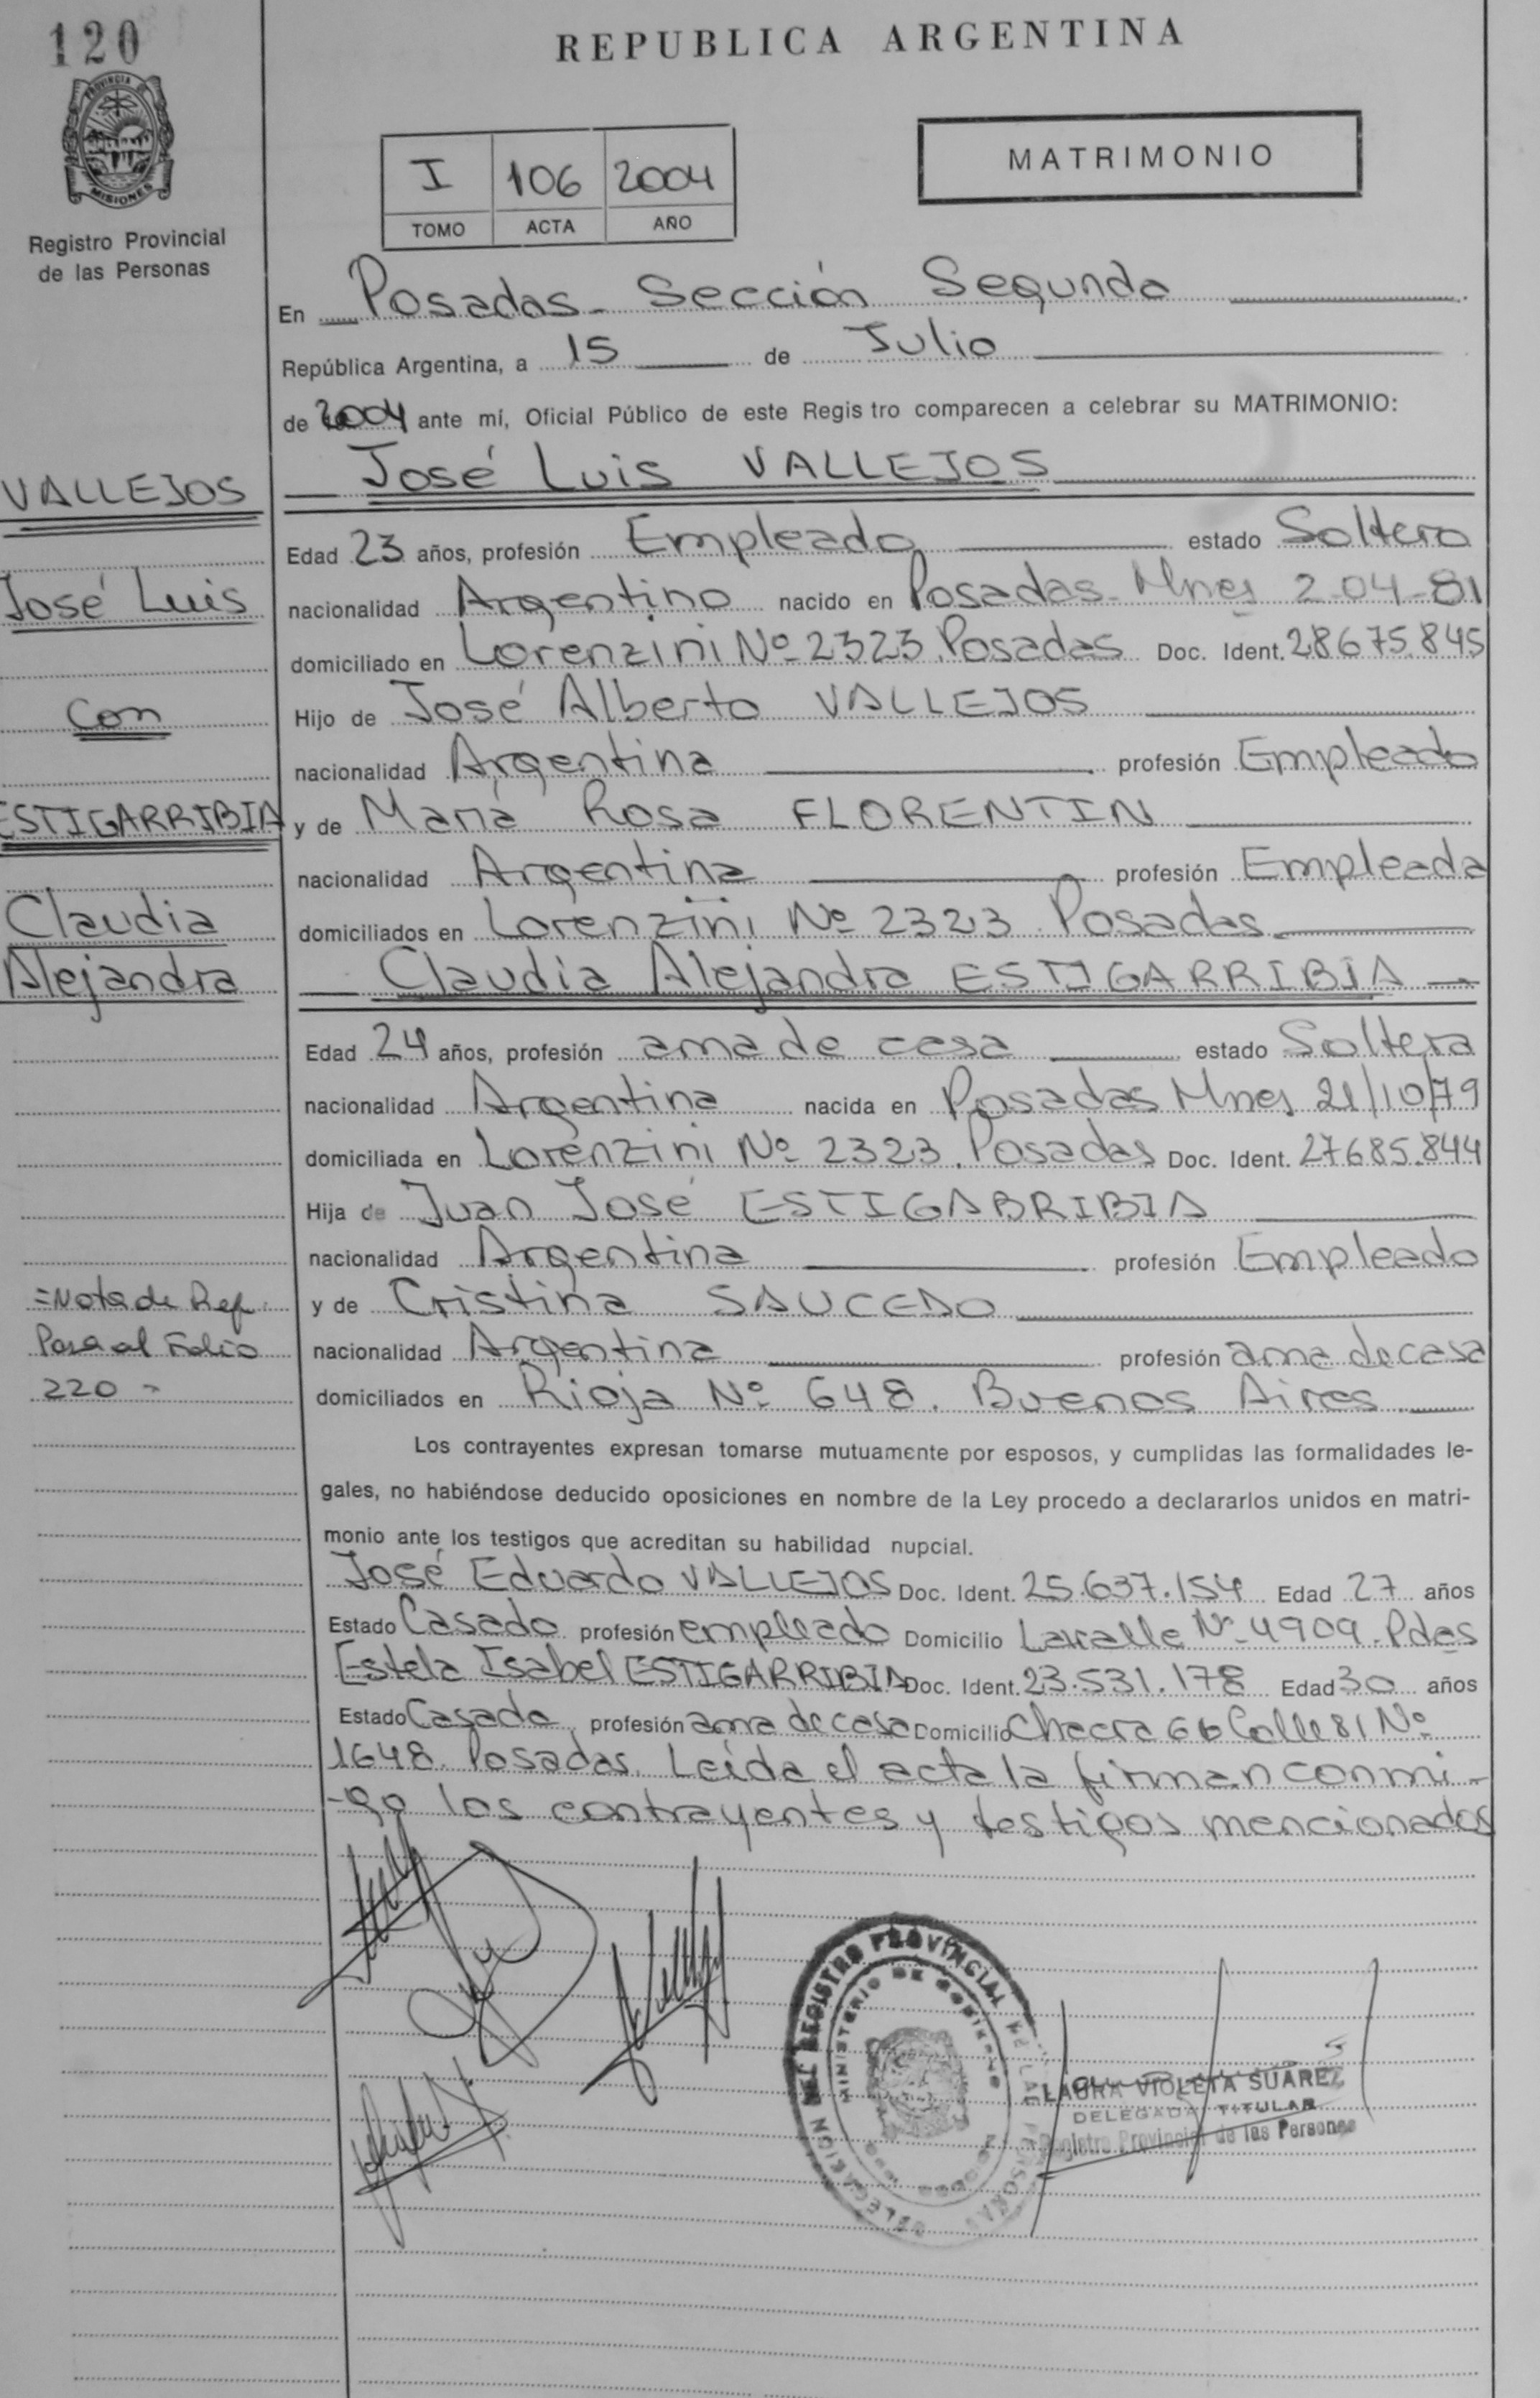 120
REPUBLICA ARGENTINA
PROVINCIA DE
MISIONES
Registro Provincial
de las Personas
I 106 2004
TOMO ACTA AÑO
MATRIMONIO
En Posadas - Sección Segunda
República Argentina, a 15 de Julio
de 2004 ante mí, Oficial Público de este Regis tro comparecen a celebrar su MATRIMONIO:
José Luis VALLEJOS
VALLEJOS
José Luis
Con
ESTIGARRIBIA
Claudia
Alejandra
Edad 23 años, profesión Empleado estado Soltero
nacionalidad Argentino nacido en Posadas - Mnes 2-04-81
domiciliado en Lorenzini Nº 2323. Posadas Doc. Ident. 28675.845
Hijo de José Alberto VALLEJOS
nacionalidad Argentina profesión Empleado
y de María Rosa FLORENTIN
nacionalidad Argentina profesión Empleada
domiciliados en Lorenzini Nº 2323. Posadas
Claudia Alejandra ESTIGARRIBIA
Edad 24 años, profesión ama de casa estado Soltera
nacionalidad Argentina nacida en Posadas Mnes 21/10/79
domiciliada en Lorenzini Nº 2323. Posadas Doc. Ident. 27685.844
Hija de Juan José ESTIGABRIBIA
nacionalidad Argentina profesión Empleado
y de Cristina SAUCEDO
nacionalidad Argentina profesión ama de casa
domiciliados en Rioja Nº 648. Buenos Aires
=Nota de Ref.
Pasa al Folio
220 -
Los contrayentes expresan tomarse mutuamente por esposos, y cumplidas las formalidades le-
gales, no habiéndose deducido oposiciones en nombre de la Ley procedo a declararlos unidos en matri-
monio ante los testigos que acreditan su habilidad nupcial.
José Eduardo VALLEJOS Doc. Ident. 25.637.154 Edad 27 años
Estado Casado profesión empleado Domicilio Lavalle Nº 4909. Pdas
Estela Isabel ESTIGARRIBIA Doc. Ident. 23.531.178 Edad 30 años
Estado Casada profesión ama de casa Domicilio Chacra 66 Calle 81 Nº
1648. Posadas. Leída el acta la firman conmi-
-go los contrayentes y testigos mencionados
DELEGACION DEL REGISTRO PROVINCIAL DE LAS PERSONAS
MINISTERIO DE GOBIERNO
LAURA VIOLETA SUAREZ
DELEGADA TITULAR
Registro Provincial de las Personas